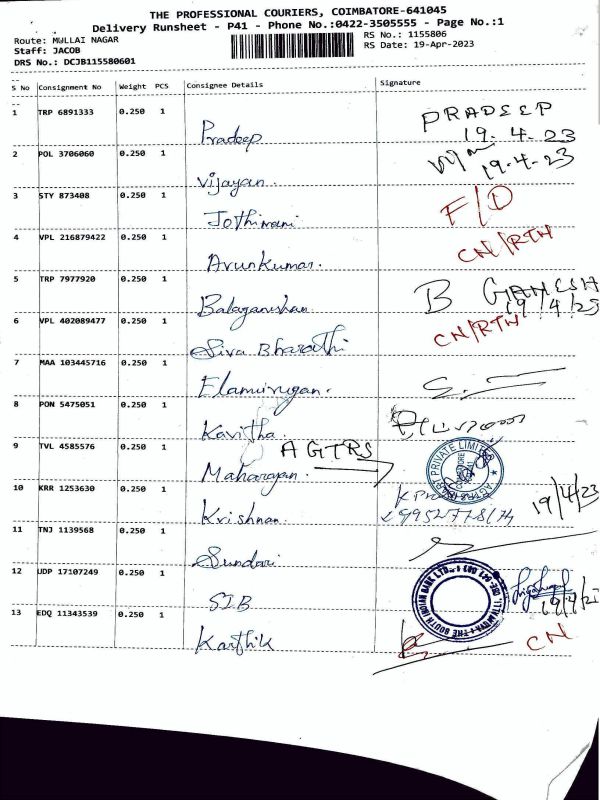 THE PROFESSIONAL COURIERS, COIMBATORE-641045
Delivery Runsheet - P41 - Phone No.:0422-3505555 - Page No.:1
Route: MULLAI NAGAR
RS No.: 1155806
Staff: JACOB
RS Date: 19-Apr-2023
DRS No.: DCJB115580601
S No Consignment No Weight PCS Consignee Details Signature
1 TRP 6891333 0.250 1 Pradeep PRADEEP
19.4.23
2 POL 3706060 0.250 1 Vijayan 19-4-23
3 STY 873408 0.250 1 Jothimani F/D
4 VPL 216879422 0.250 1 Arunkumar. CN/RTN
5 TRP 7977920 0.250 1 Balaganeshan B GANESH
19/4/23
6 VPL 402089477 0.250 1 Siva Bharathi CN/RTN
7 MAA 103445716 0.250 1 Elamurugan.
8 PON 5475051 0.250 1 Kavitha
9 TVL 4585576 0.250 1 Maharajan AGTRS
PRIVATE LIMITED
10 KRR 1253630 0.250 1 Krishnan 19/4/23
11 TNJ 1139568 0.250 1 Sundari
12 UDP 17107249 0.250 1 SIB
THE SOUTH INDIAN BANK LTD.
19/4/23
13 EDQ 11343539 0.250 1 Karthik CN